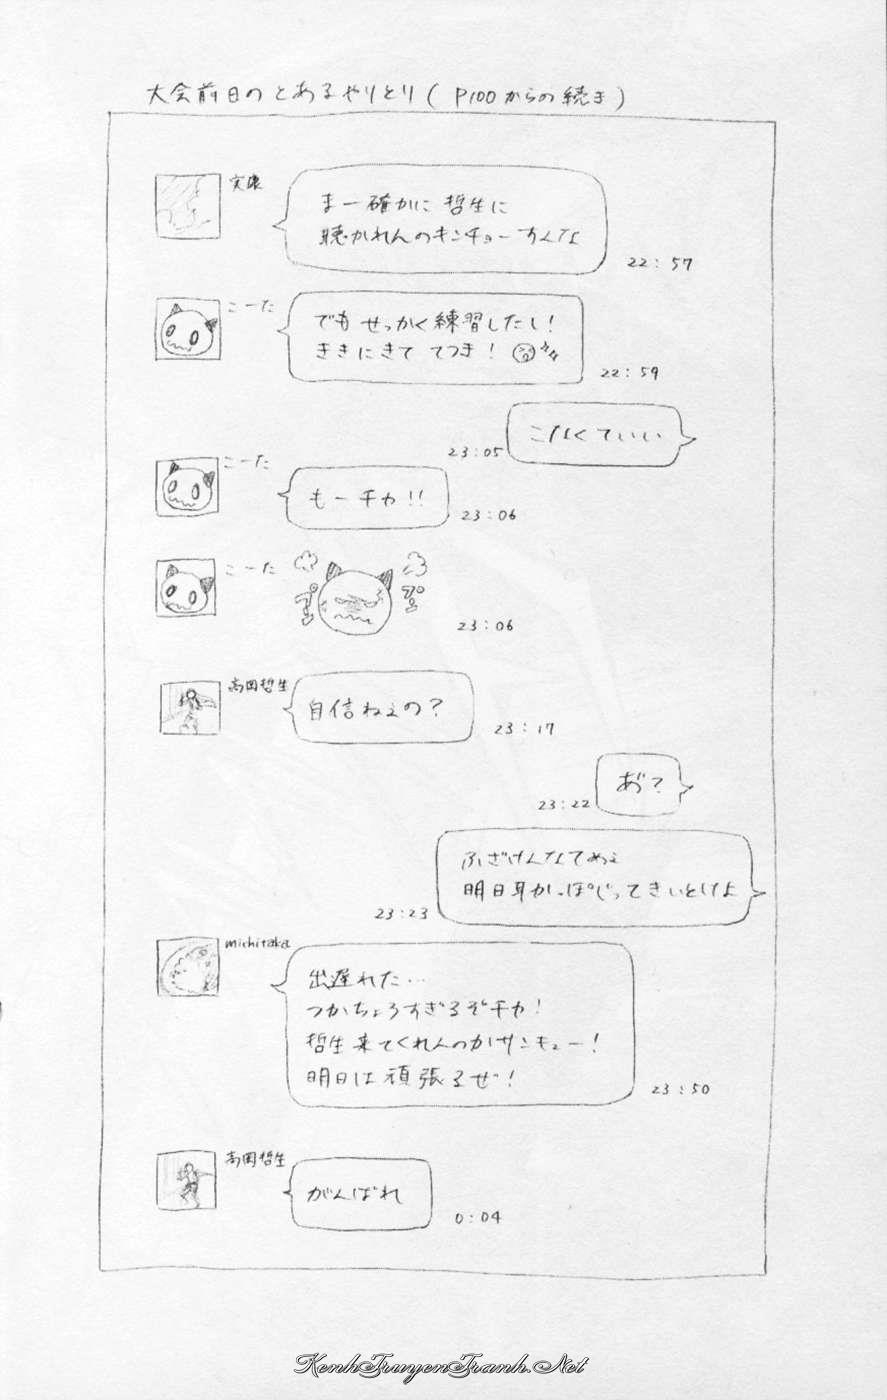 大会前日のとあるやりとり(P100からの続き)
実康
まー確かに哲生に
聴かれんのキンチョーすんな
22:57
こーた
でもせっかく練習したし!
ききにきててつき!
22:59
こなくていい
23:05
こーた
もーチカ!!
23:06
こーた
プン プン
23:06
高岡哲生
自信ねぇの?
23:17
あ゛?
23:22
ふざけんなてめぇ
明日耳かっぽじってきいとけよ
23:23
michitaka
出遅れた…
つかちょろすぎるぞチカ!
哲生来てくれんのかサンキュー!
明日は頑張るぜ!
23:50
高岡哲生
がんばれ
0:04
KenhTruyenTranh.Net